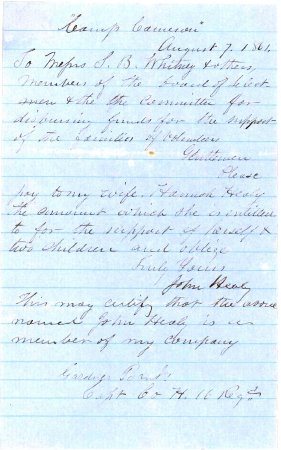 "Camp Cameron"
August 7. 1861.
To Messrs S. B. Whitney & others
members of the board of select
men & the the Committee for
dispersing funds for the support
of the families of Volunteers
Gentlemen
Please
pay to my wife, Hannah Healy
the amount which she is entitled
to for the support of herself &
two children and oblige
Truly Yours
John Healy
This may certify that the above
named John Healy is a
member of my Company
Gardner
Capt Co H. 16 Regt